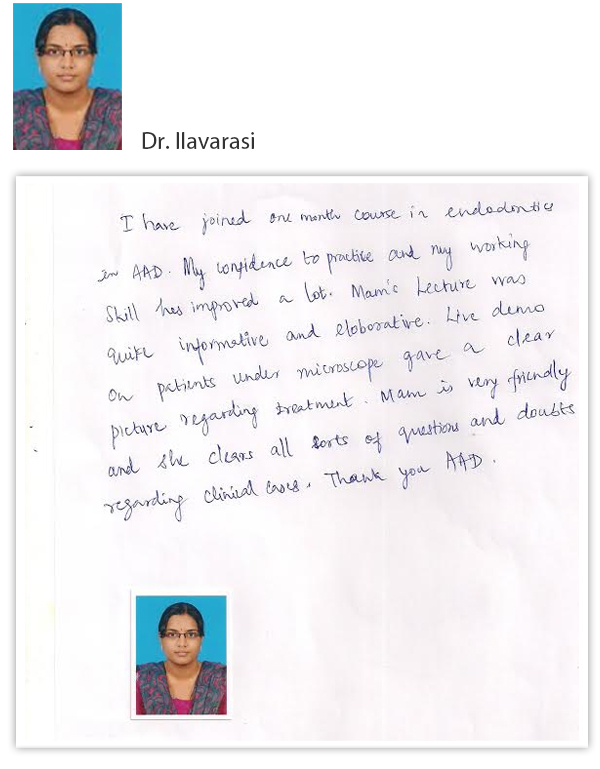 Dr. Ilavarasi
I have joined one month course in endodontics
in AAD. My confidence to practice and my working
skill has improved a lot. Mam's Lecture was
quite informative and eloborative. Live demo
on patients under microscope gave a clear
picture regarding treatment. Mam is very friendly
and she clears all sorts of questions and doubts
regarding clinical cases. Thank you AAD.